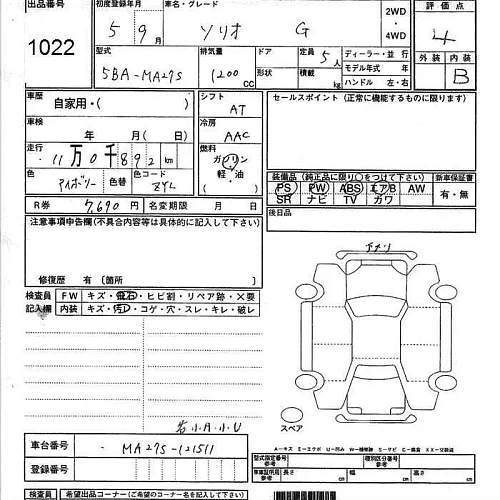 出品番号
1022
初度登録年月
5年9月
車名・グレード
ソリオ G
2WD
・
4WD
評価点
4
型式
5BA-MA27S
排気量
1200cc
ドア
形状
定員 5人
積載 kg
ディーラー・並行
モデル年式 年
ハンドル 左・右
外装 内装
B
車歴
自家用・( )
シフト
AT
セールスポイント(正常に機能するものに限ります)
車検
年 月( 日)
冷房
AAC
走行
11万0千892km
燃料
ガソリン
軽・油
色
アイボリー
色替
色コード
ZYL
装備品(純正品に限り○をつけて下さい)
新車保証書
PS PW ABS エアB AW
SR ナビ TV カワ
有・無
R券 7,690円 名変期限 月 日
後日品
注意事項申告欄(不具合内容等は具体的に記入して下さい)
修復歴 有〔箇所 〕
検査員
記入欄
FW キズ・飛石・ヒビ割・リペア跡・×要
内装 キズ・汚レ・コゲ・穴・スレ・キレ・破レ
若小A・小U
スペア
車台番号
MA27S-121511
登録番号
A-キズ E-エクボ U-凹み W-補修跡 S-サビ C-腐食 XX-交換済
型式指定番号
参考
種別区分番号
参考
車証明用
参考
長さ cm
幅 cm
高さ cm
検査員
希望出品コーナー(ご希望のコーナー名を記入して下さい)